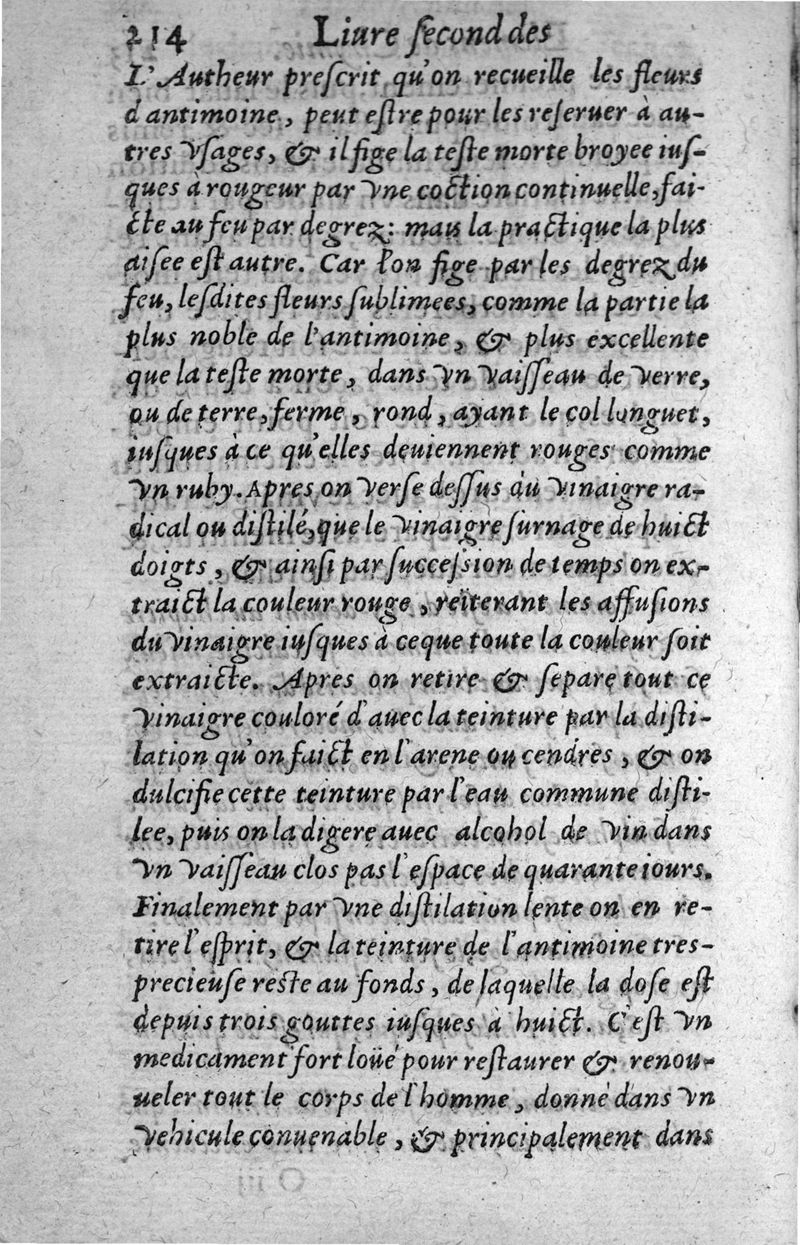 214 Liure ſecond des
L'Autheur preſcrit qu'on recueille les fleurs
d'antimoine, peut eſtre pour les reſeruer à au-
tres vſages, & il fige la teſte morte broyee iuſ-
ques à rougeur par vne coction continuelle, fai-
cte au feu par degrez: mais la practique la plus
aiſee eſt autre. Car l'on fige par les degrez du
feu, leſdites fleurs ſublimees, comme la partie la
plus noble de l'antimoine, & plus excellente
que la teſte morte, dans vn vaiſſeau de verre,
ou de terre, ferme, rond, ayant le col longuet,
iuſques à ce qu'elles deuiennent rouges comme
vn ruby. Apres on verſe deſſus du vinaigre ra-
dical ou diſtilé, que le vinaigre ſurnage de huict
doigts, & ainſi par ſucceſsion de temps on ex-
traict la couleur rouge, reïterant les affuſions
du vinaigre iuſques à ce que toute la couleur ſoit
extraicte. Apres on retire & ſepare tout ce
vinaigre couloré d'auec la teinture par la diſti-
lation qu'on faict en l'arene ou cendres, & on
dulcifie cette teinture par l'eau commune diſti-
lee, puis on la digere auec alcohol de vin dans
vn vaiſſeau clos pas l'eſpace de quarante iours.
Finalement par vne diſtilation lente on en re-
tire l'eſprit, & la teinture de l'antimoine tres-
precieuſe reſte au fonds, de laquelle la doſe eſt
depuis trois gouttes iuſques à huict. C'eſt vn
medicament fort loüé pour reſtaurer & renou-
ueler tout le corps de l'homme, donné dans vn
vehicule conuenable, & principalement dans